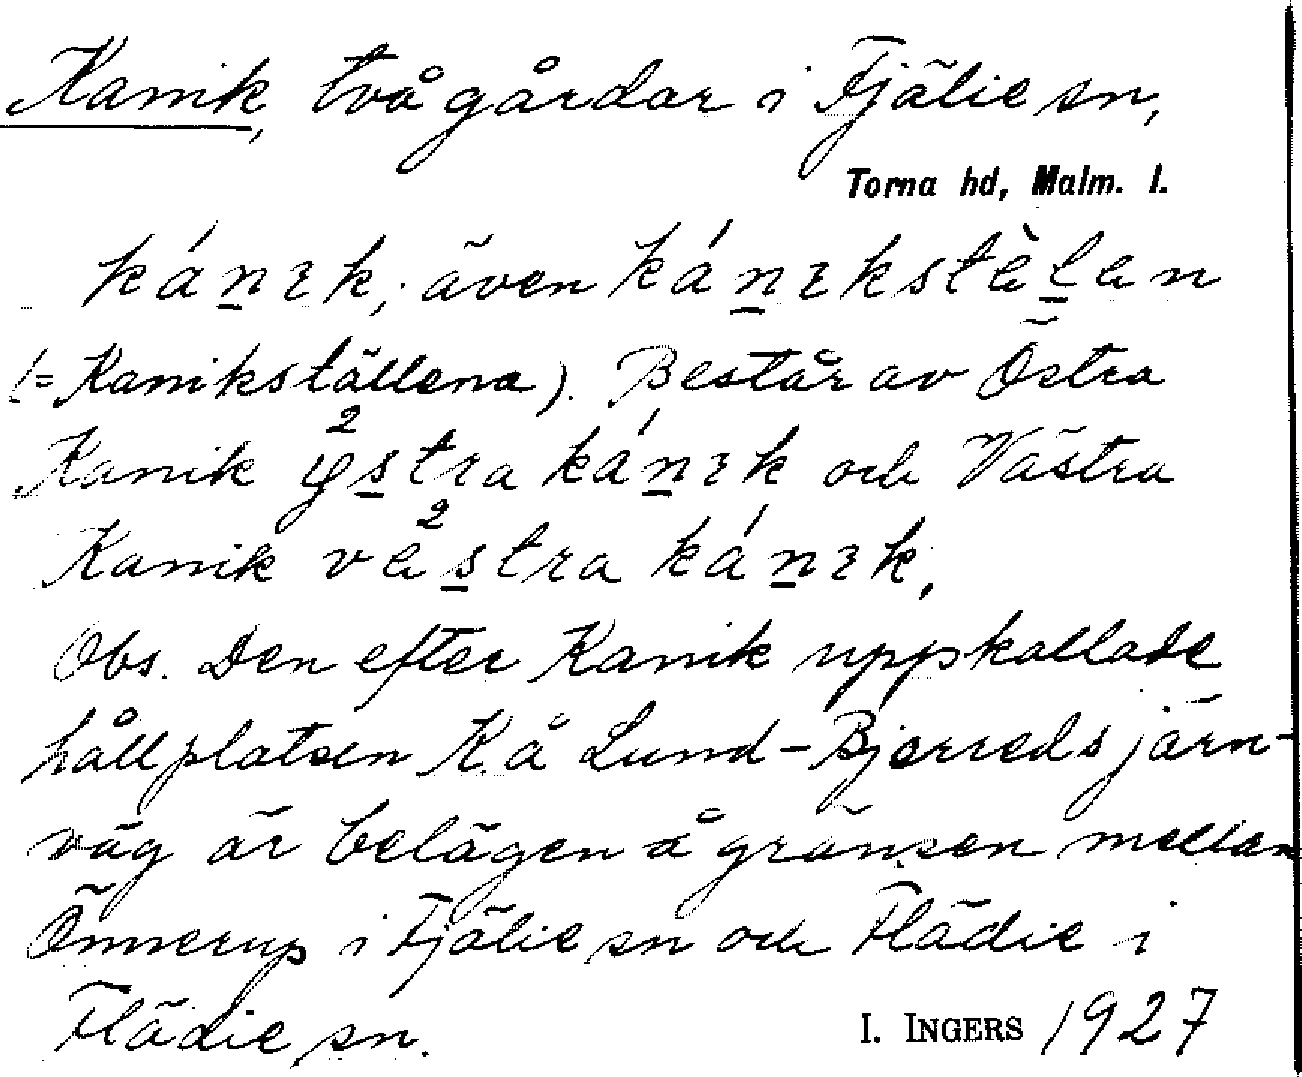 Kanik, två gårdar i Fjälie sn,
Torna hd, Malm. l.
ká́n̲ɪk, även kán̲ɪkstèl̲an
(= Kanikställena). Består av Östra
Kanik ys̲²tra kán̲ɪk och Västra
Kanik vas̲²tra kán̲ɪk.
Obs. Den efter Kanik uppkallade
hållplatsen K. å Lund-Bjerreds järn-
väg är belägen å gränsen mellan
Önnerup i Fjälie sn och Flädie i
Flädie sn.
I. INGERS 1927